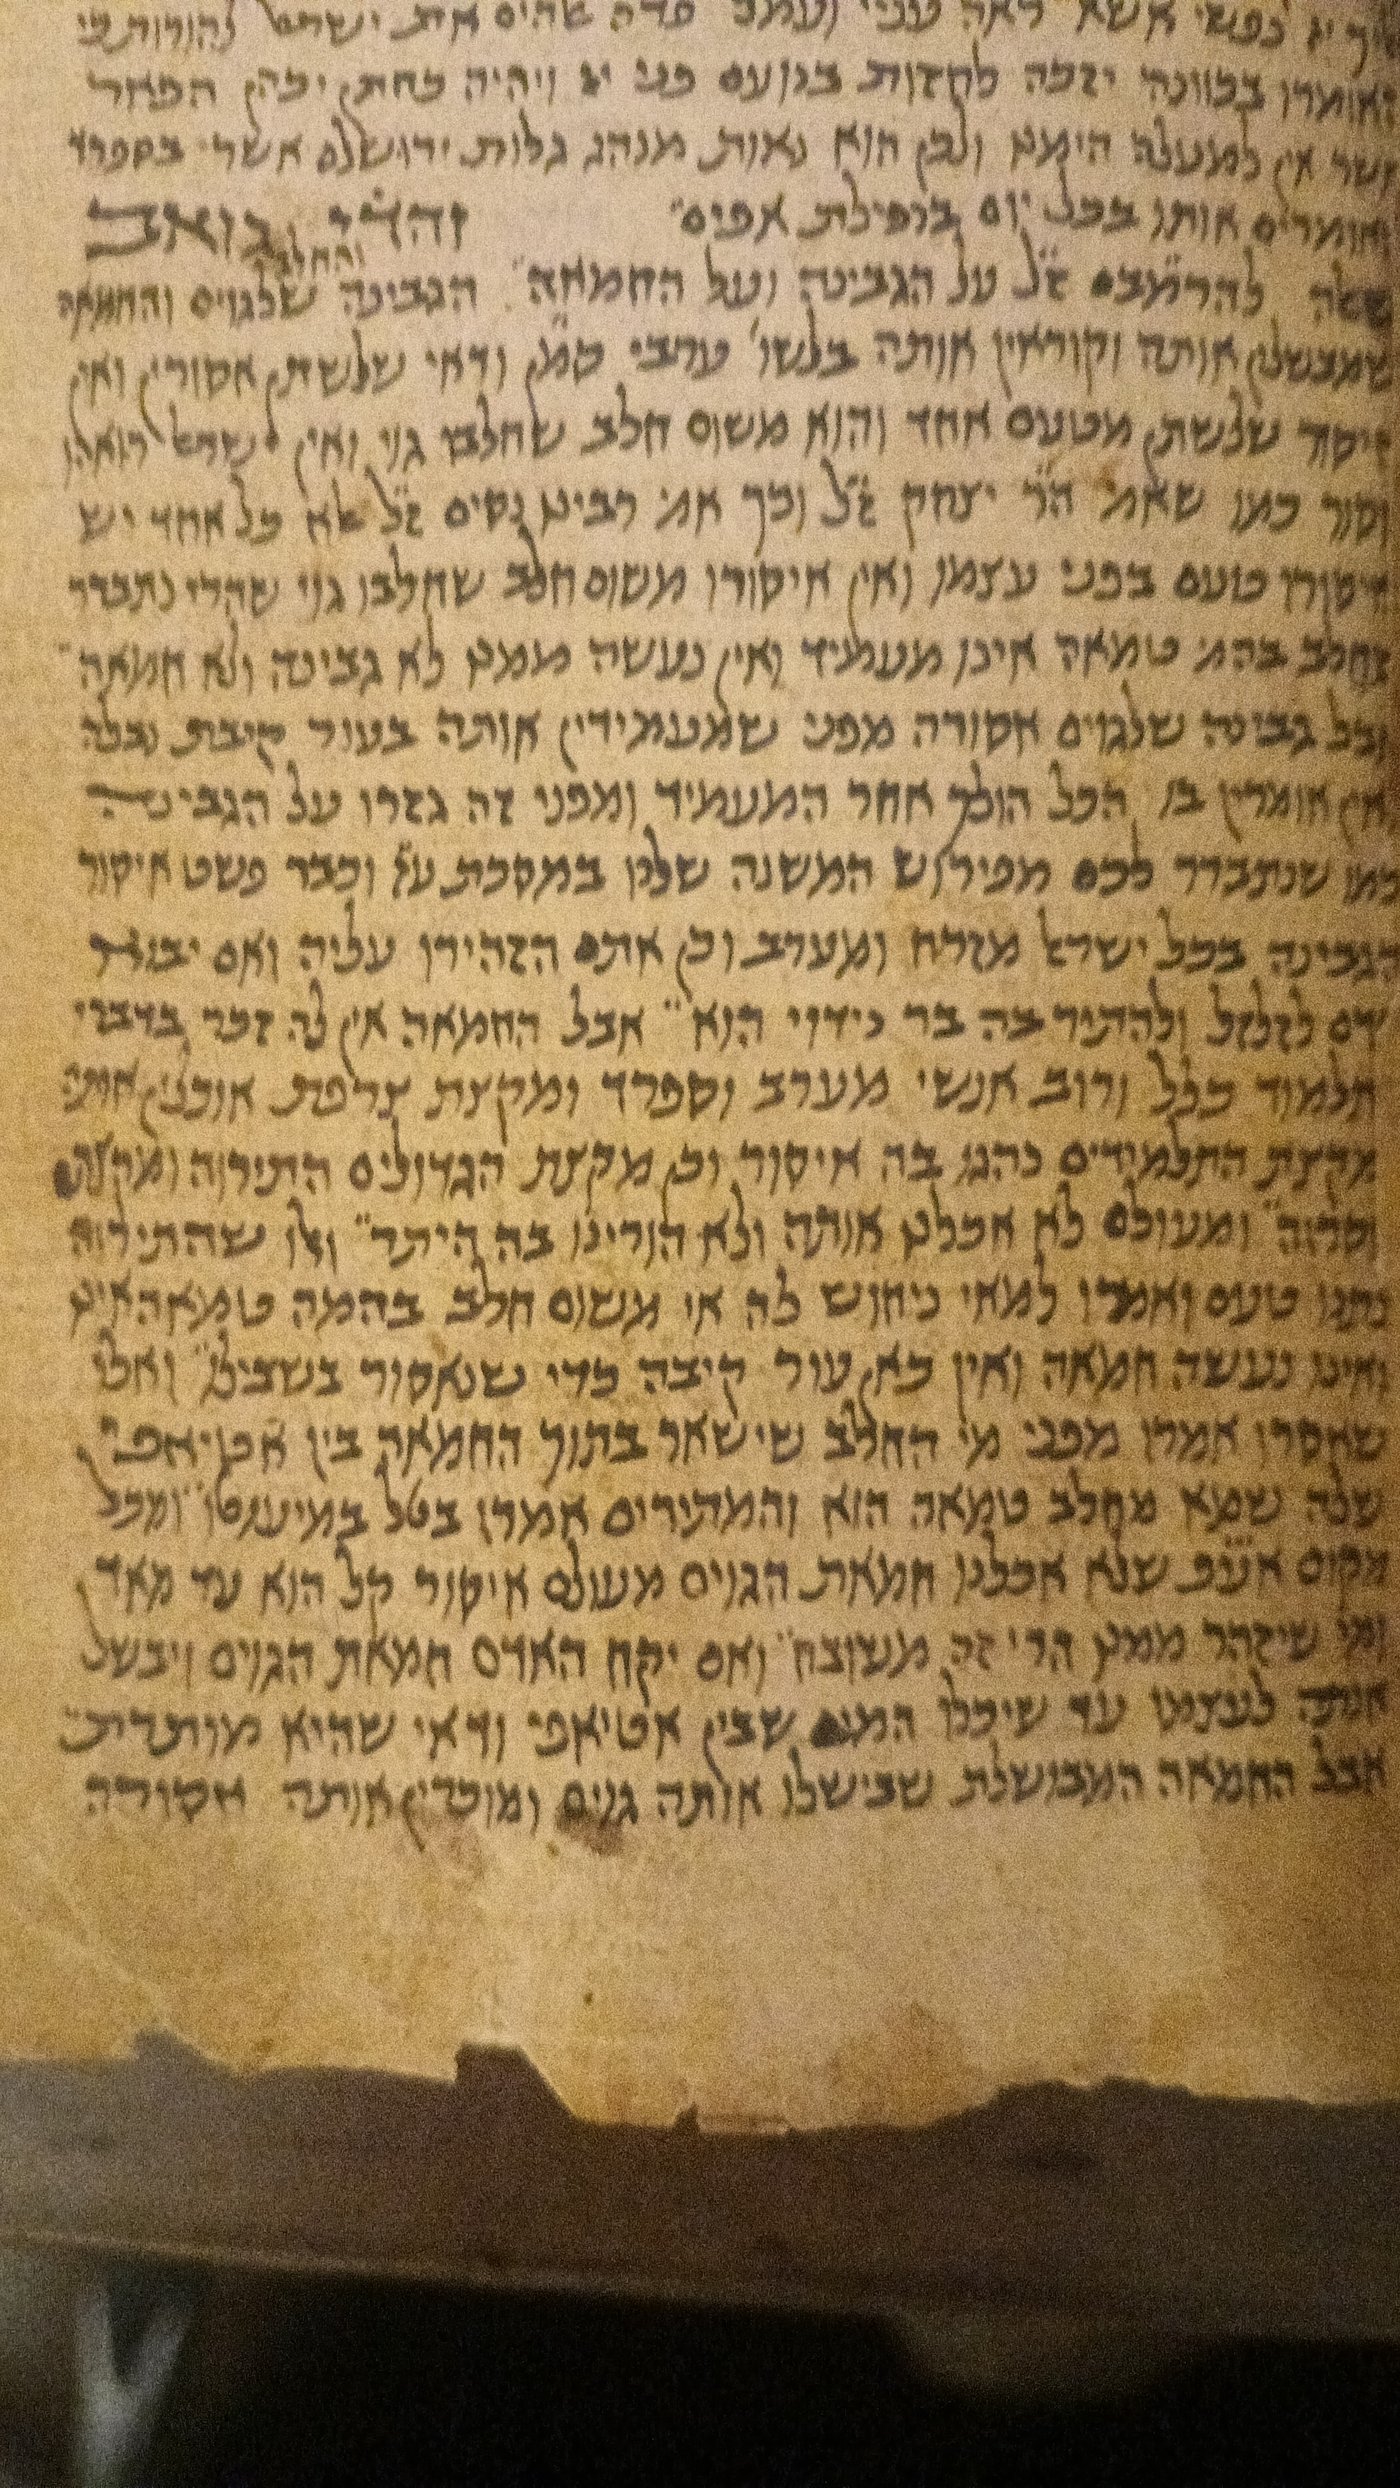 נפשי אשא ראה עניי ועמלי פדה אלהים את ישראל
בכוונה יזכה לחזות בנועם פני ייי ויהיה
אשר אין למעלה הימנו ולכן הוא נאות מנהג גלות ירושלם אשר בספרד
אומרים אותו בכל יום בנפילת אפים וזה
והחלב
שאלה להרמבם ז״ל על הגבינה ועל החמאה הגבינה שלגוים והחמאה
שמבשלין אותה וקוראין אותה בלשון ערבי סמן ודאי שלשתן אסורין ואין
איסור שלשתן מטעם אחד והוא משום חלב שחלבו גוי ואין ישראל רואהו
אסור כמו שאמ׳ הר׳ יצחק ז״ל וכך אמ׳ רבינו נסים ז״ל אלא כל אחד יש
איסורו טעם בפני עצמו ואין איסורו משום חלב שחלבו גוי שהרי נתברר
שחלב בהמ׳ טמאה אינו מעמיד ואין נעשה ממנו לא גבינה ולא חמאה
וכל גבינה שלגוים אסורה מפני שמעמידין אותה בעור קיבת נבלה
אין אומרין בו הכל הולך אחר המעמיד ומפני זה גזרו על הגבינה
כמו שנתברר לכם מפירוש המשנה שלנו במסכת ע״ז וכבר פשט איסור
הגבינה בכל ישראל מזרח ומערב וכן אתם הזהירו עליה ואם יבוא
אדם לזלזל ולהתיר בה בר נידוי הוא אבל החמאה אין לה זכר בדברי
תלמוד כלל ורוב אנשי מערב וספרד ומקצת צרפת אוכלין אותה
מקצת התלמידים נהגו בה איסור וכן מקצת הגדולים התירוה ומקצתן
אסרוה ומעולם לא אכלנו אותה ולא הורינו בה היתר ואלו שהתירוה
נתנו טעם ואמרו למאי ניחוש לה אי משום חלב בהמה טמאה אינו
ואינו נעשה חמאה ואין כאן עור קיבה כדי שנאסור בשבילו ואלו
שאסרו אמרו מפני מי החלב שישאר בתוך החמאה בין
שלה שמא מחלב טמאה הוא והמתירים אמרו בטל במיעוטו ומכל
מקום אע״פ שלא אכלנו חמאת הגוים מעולם איסור קל הוא עד מאד
ומי שיזהר ממנו הרי זה משובח ואם יקח האדם חמאת הגוים ויבשל
אותה לעצמו עד שיכלו המים שבין ודאי שהיא מותרת
אבל החמאה המבושלת שבישלו אותה גוים ומוכרין אותה אסורה